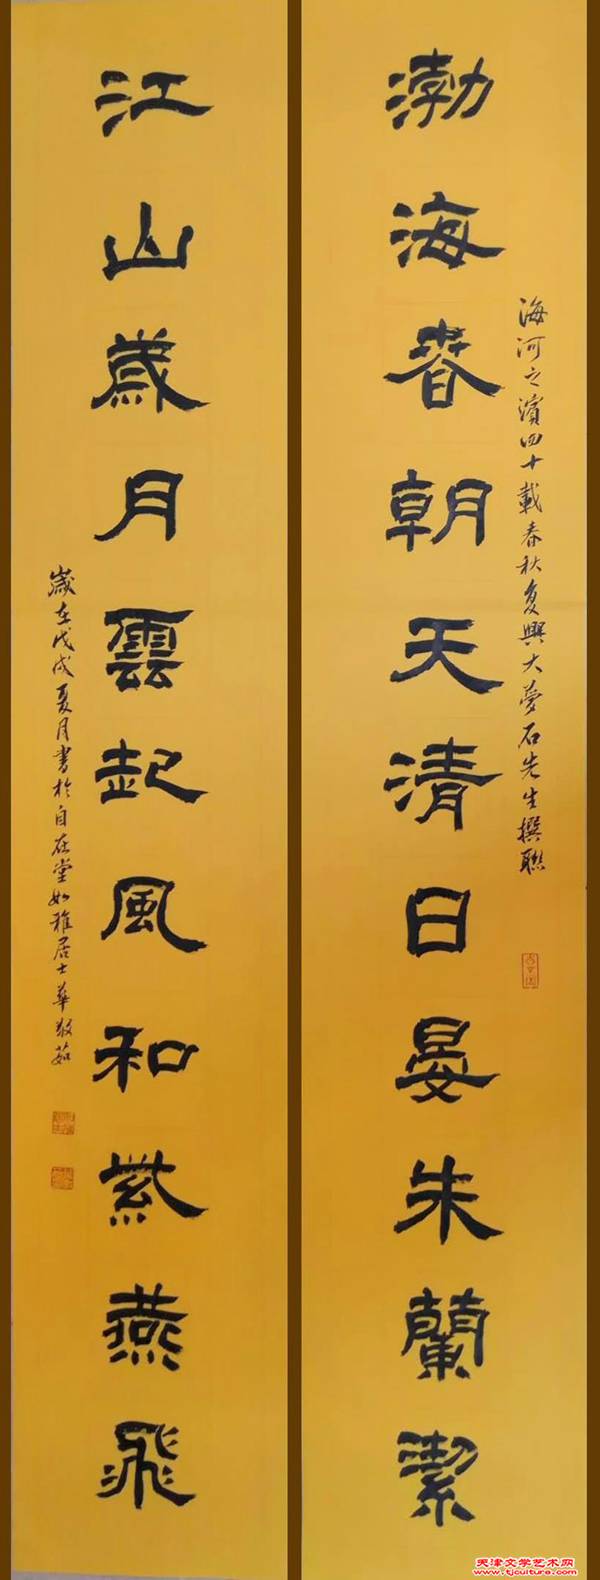 渤海春朝天清日晏朱蘭潔
海河之濱四十載春秋复興大夢石先生撰聯
江山歲月雲起風和紫燕飛
歲在戊戌夏月書於自在堂如雅居士華敬茹
天津文学艺术网
www.tjculture.com